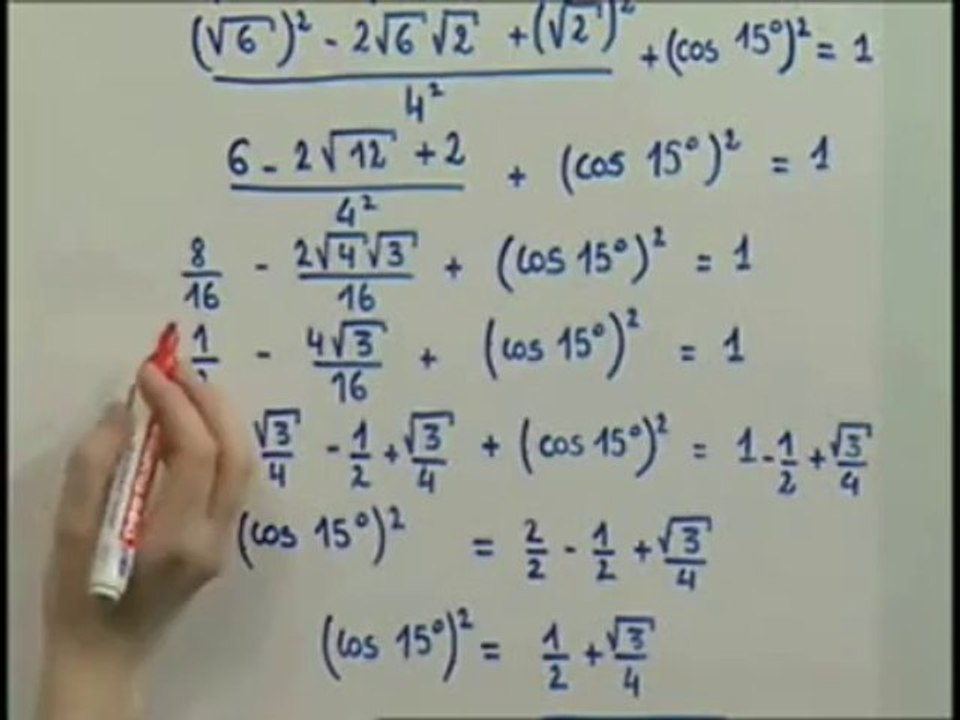 (√6)² - 2√6 √2 + (√2)² / 4² + (cos 15°)² = 1
6 - 2√12 + 2 / 4² + (cos 15°)² = 1
8/16 - 2√4√3/16 + (cos 15°)² = 1
1/2 - 4√3/16 + (cos 15°)² = 1
√3/4 - 1/2 + √3/4 + (cos 15°)² = 1 - 1/2 + √3/4
(cos 15°)² = 2/2 - 1/2 + √3/4
(cos 15°)² = 1/2 + √3/4